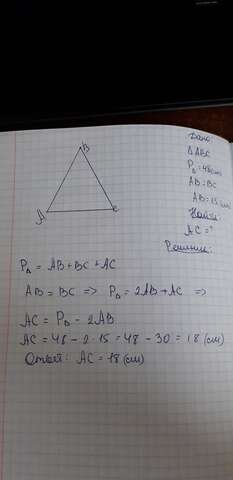 Дано:
ΔABC
P_Δ = 48см
AB = BC
AB = 15 см
Найти
AC = ?
Решение:
B
A
C
P_Δ = AB + BC + AC
AB = BC => P_Δ = 2AB + AC =>
AC = P_Δ - 2AB
AC = 48 - 2 · 15 = 48 - 30 = 18 (см)
Ответ: AC = 18 (см)